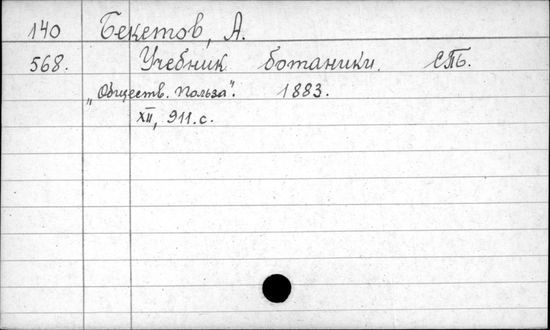 140 Бекетов, А.
568. Учебник ботаники. СПб.
„Обществ. Польза". 1883.
XII, 911.с.